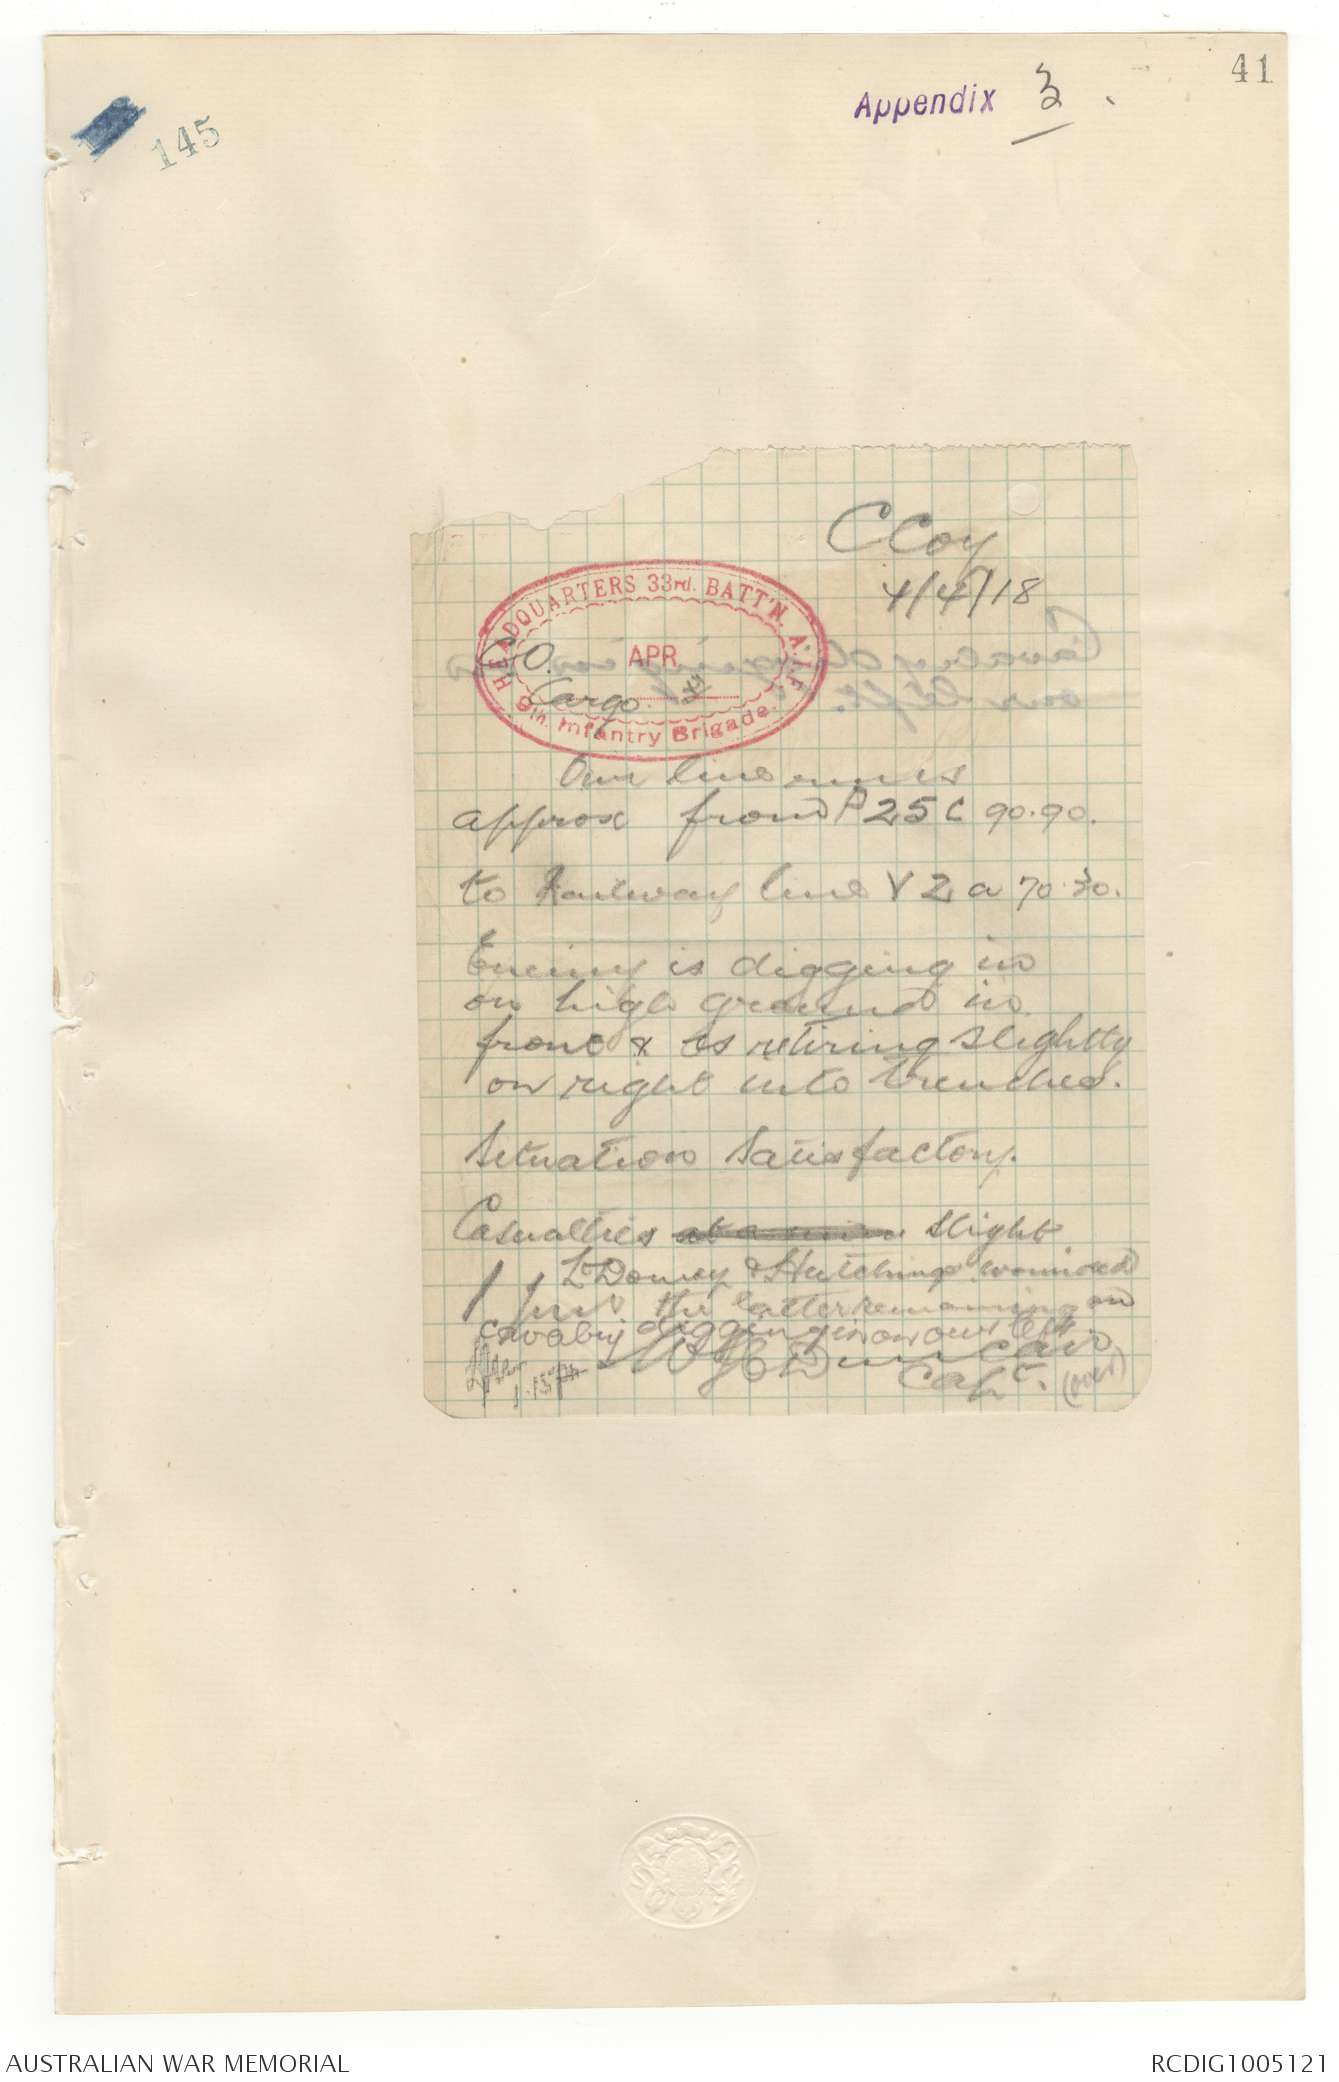 41
Appendix 3.
145
C Coy
4/4/18
HEADQUARTERS 33rd. BATT'N. A.I.F.
APR
9th. Infantry Brigade.
CO.
Cargo.
Our line runs
approx from P25c 90.90.
to Railway line V2a 70.30.
Enemy is digging in
on high ground in
front & is retiring slightly
on right into trenches.
Situation Satisfactory.
Casualties slight
Lt Douney & Hutchings wounded
the latter remaining on
cavalry digging in on our left
Capt. (over)
1.15 pm
Cavalry digging in on
our left.
AUSTRALIAN WAR MEMORIAL
RCDIG1005121